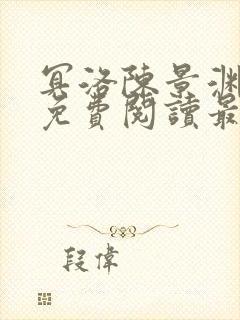 冥洛陳景淵
免費閱讀最
段偉